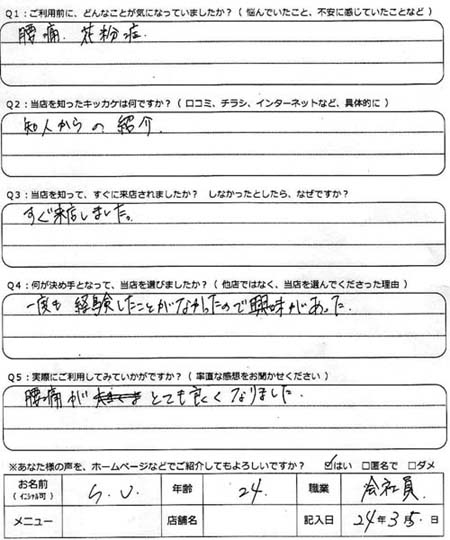 Q1：ご利用前に、どんなことが気になっていましたか？（ 悩んでいたこと、不安に感じていたことなど ）
腰痛. 花粉症.
Q2：当店を知ったキッカケは何ですか？（ 口コミ、チラシ、インターネットなど、具体的に ）
知人からの紹介.
Q3：当店を知って、すぐに来店されましたか？ しなかったとしたら、なぜですか？
すぐ来店しました。
Q4：何が決め手となって、当店を選びましたか？（ 他店ではなく、当店を選んでくださった理由 ）
一度も経験したことがなかったので興味があった.
Q5：実際にご利用してみていかがですか？（ 率直な感想をお聞かせください ）
腰痛が とても良くなりました.
※あなた様の声を、ホームページなどでご紹介してもよろしいですか？ ☑はい □匿名で □ダメ
お名前 （イニシャル可） S.U. 年齢 24. 職業 会社員.
メニュー 店舗名 記入日 24年3月5日